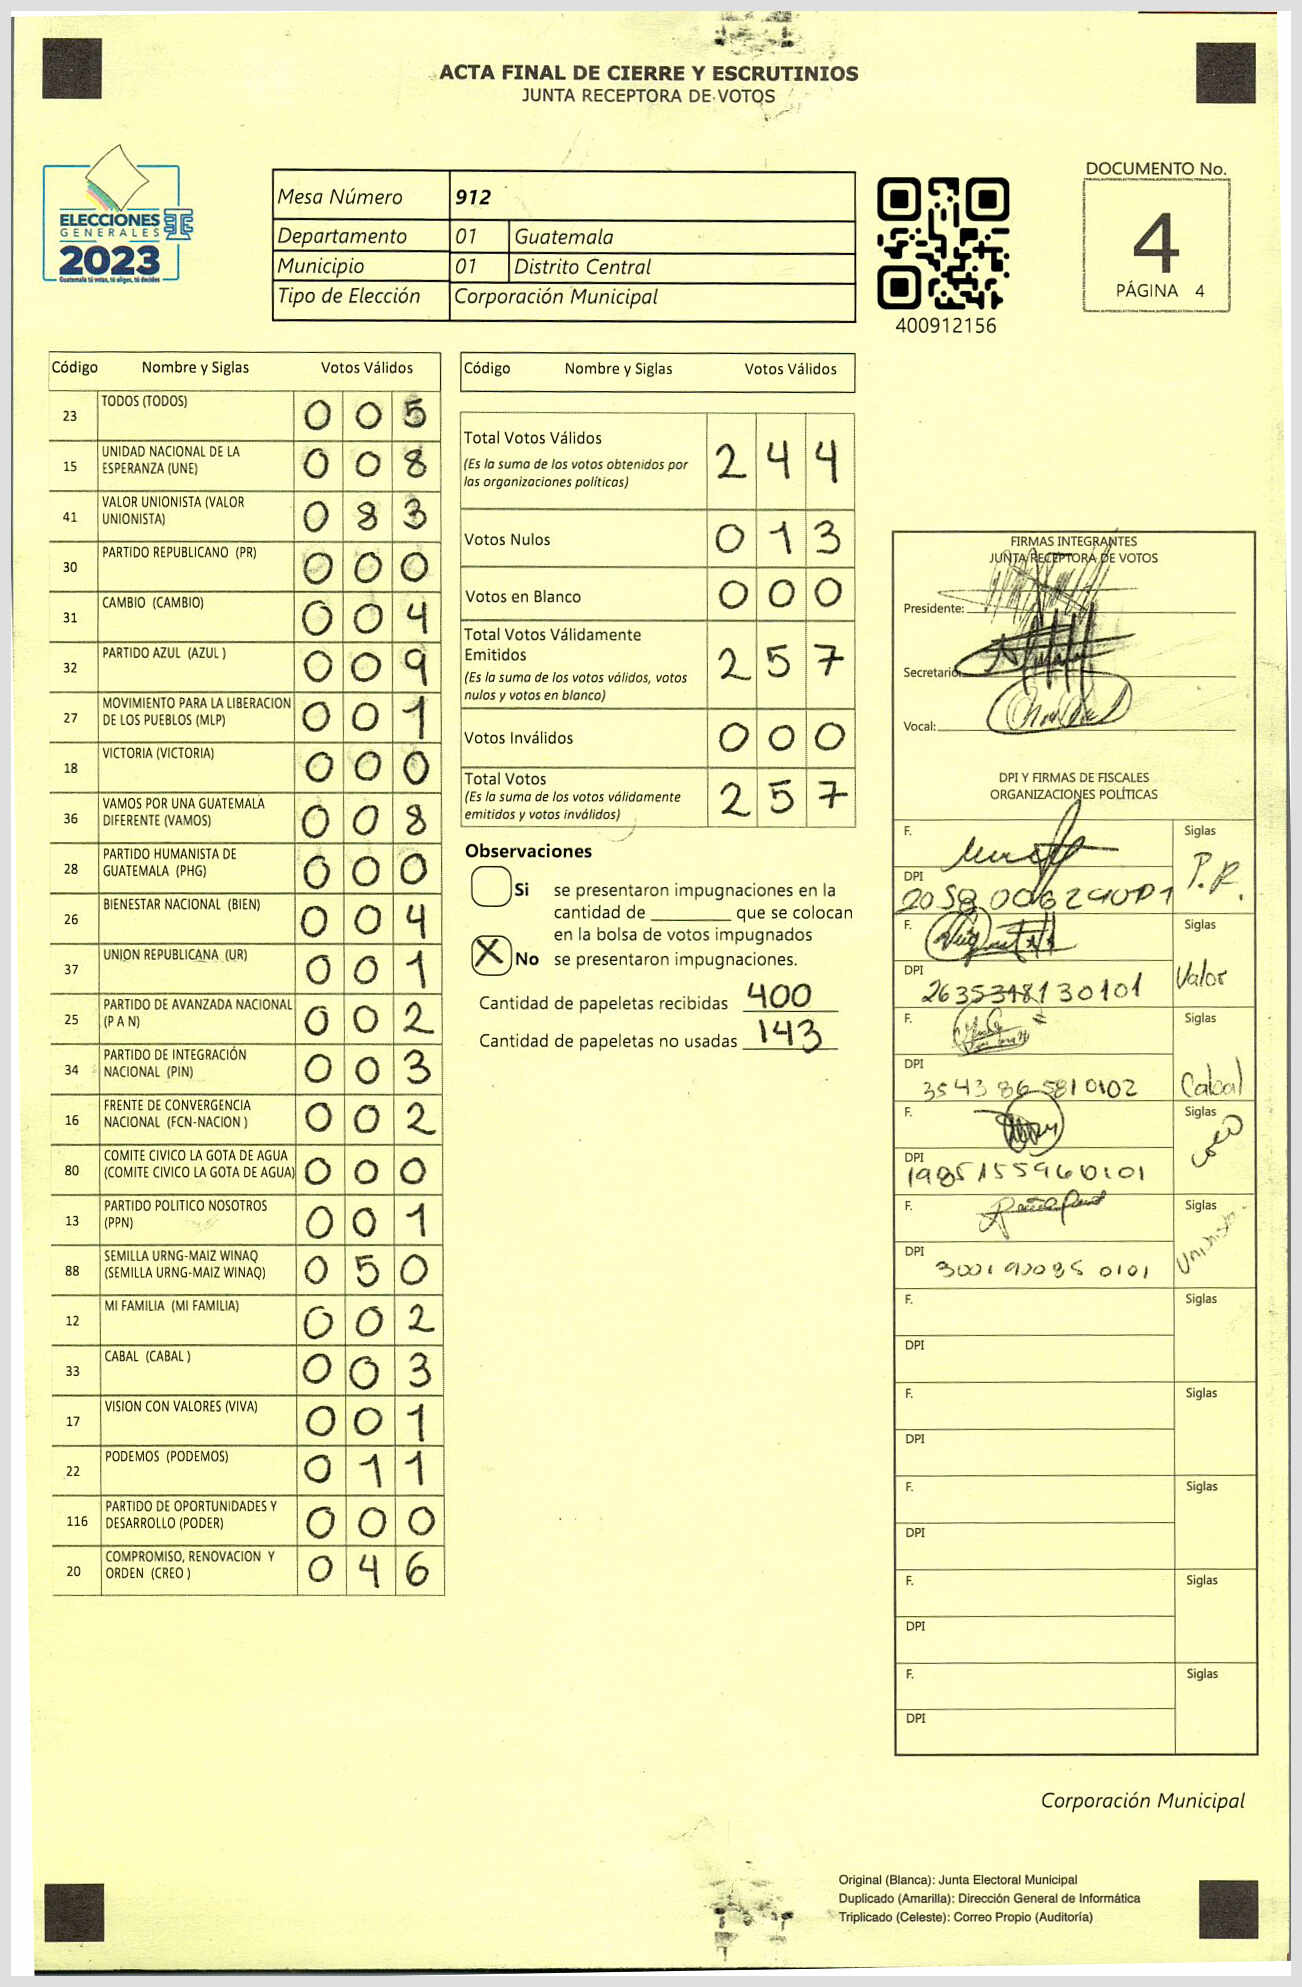 ACTA FINAL DE CIERRE Y ESCRUTINIOS
JUNTA RECEPTORA DE VOTOS
ELECCIONES
GENERALES
2023
Guatemala tú votas, tú eliges, tú decides
Mesa Número 912
Departamento 01 Guatemala
Municipio 01 Distrito Central
Tipo de Elección Corporación Municipal
400912156
DOCUMENTO No.
4
PÁGINA 4
Código Nombre y Siglas Votos Válidos
23 TODOS (TODOS) 0 0 5
15 UNIDAD NACIONAL DE LA
ESPERANZA (UNE) 0 0 8
41 VALOR UNIONISTA (VALOR
UNIONISTA) 0 8 3
30 PARTIDO REPUBLICANO (PR) 0 0 0
31 CAMBIO (CAMBIO) 0 0 4
32 PARTIDO AZUL (AZUL ) 0 0 9
27 MOVIMIENTO PARA LA LIBERACION
DE LOS PUEBLOS (MLP) 0 0 1
18 VICTORIA (VICTORIA) 0 0 0
36 VAMOS POR UNA GUATEMALA
DIFERENTE (VAMOS) 0 0 8
28 PARTIDO HUMANISTA DE
GUATEMALA (PHG) 0 0 0
26 BIENESTAR NACIONAL (BIEN) 0 0 4
37 UNION REPUBLICANA (UR) 0 0 1
25 PARTIDO DE AVANZADA NACIONAL
(P A N) 0 0 2
34 PARTIDO DE INTEGRACIÓN
NACIONAL (PIN) 0 0 3
16 FRENTE DE CONVERGENCIA
NACIONAL (FCN-NACION ) 0 0 2
80 COMITE CIVICO LA GOTA DE AGUA
(COMITE CIVICO LA GOTA DE AGUA) 0 0 0
13 PARTIDO POLITICO NOSOTROS
(PPN) 0 0 1
88 SEMILLA URNG-MAIZ WINAQ
(SEMILLA URNG-MAIZ WINAQ) 0 5 0
12 MI FAMILIA (MI FAMILIA) 0 0 2
33 CABAL (CABAL ) 0 0 3
17 VISION CON VALORES (VIVA) 0 0 1
22 PODEMOS (PODEMOS) 0 1 1
116 PARTIDO DE OPORTUNIDADES Y
DESARROLLO (PODER) 0 0 0
20 COMPROMISO, RENOVACION Y
ORDEN (CREO ) 0 4 6
Código Nombre y Siglas Votos Válidos
Total Votos Válidos 2 4 4
(Es la suma de los votos obtenidos por
las organizaciones políticas)
Votos Nulos 0 1 3
Votos en Blanco 0 0 0
Total Votos Válidamente
Emitidos 2 5 7
(Es la suma de los votos válidos, votos
nulos y votos en blanco)
Votos Inválidos 0 0 0
Total Votos 2 5 7
(Es la suma de los votos válidamente
emitidos y votos inválidos)
Observaciones
Si se presentaron impugnaciones en la
cantidad de ________ que se colocan
en la bolsa de votos impugnados
X No se presentaron impugnaciones.
Cantidad de papeletas recibidas 400
Cantidad de papeletas no usadas 143
FIRMAS INTEGRANTES
JUNTA RECEPTORA DE VOTOS
Presidente:
Secretario:
Vocal:
DPI Y FIRMAS DE FISCALES
ORGANIZACIONES POLÍTICAS
F. Siglas P.R.
DPI
F. Siglas Valor
DPI
F. Siglas Cabal
DPI 3543 86581 0102
F. Siglas
DPI 1985155960101
F. Siglas Unionista
DPI
F. Siglas
DPI
F. Siglas
DPI
F. Siglas
DPI
F. Siglas
DPI
F. Siglas
DPI
Corporación Municipal
Original (Blanca): Junta Electoral Municipal
Duplicado (Amarilla): Dirección General de Informática
Triplicado (Celeste): Correo Propio (Auditoría)